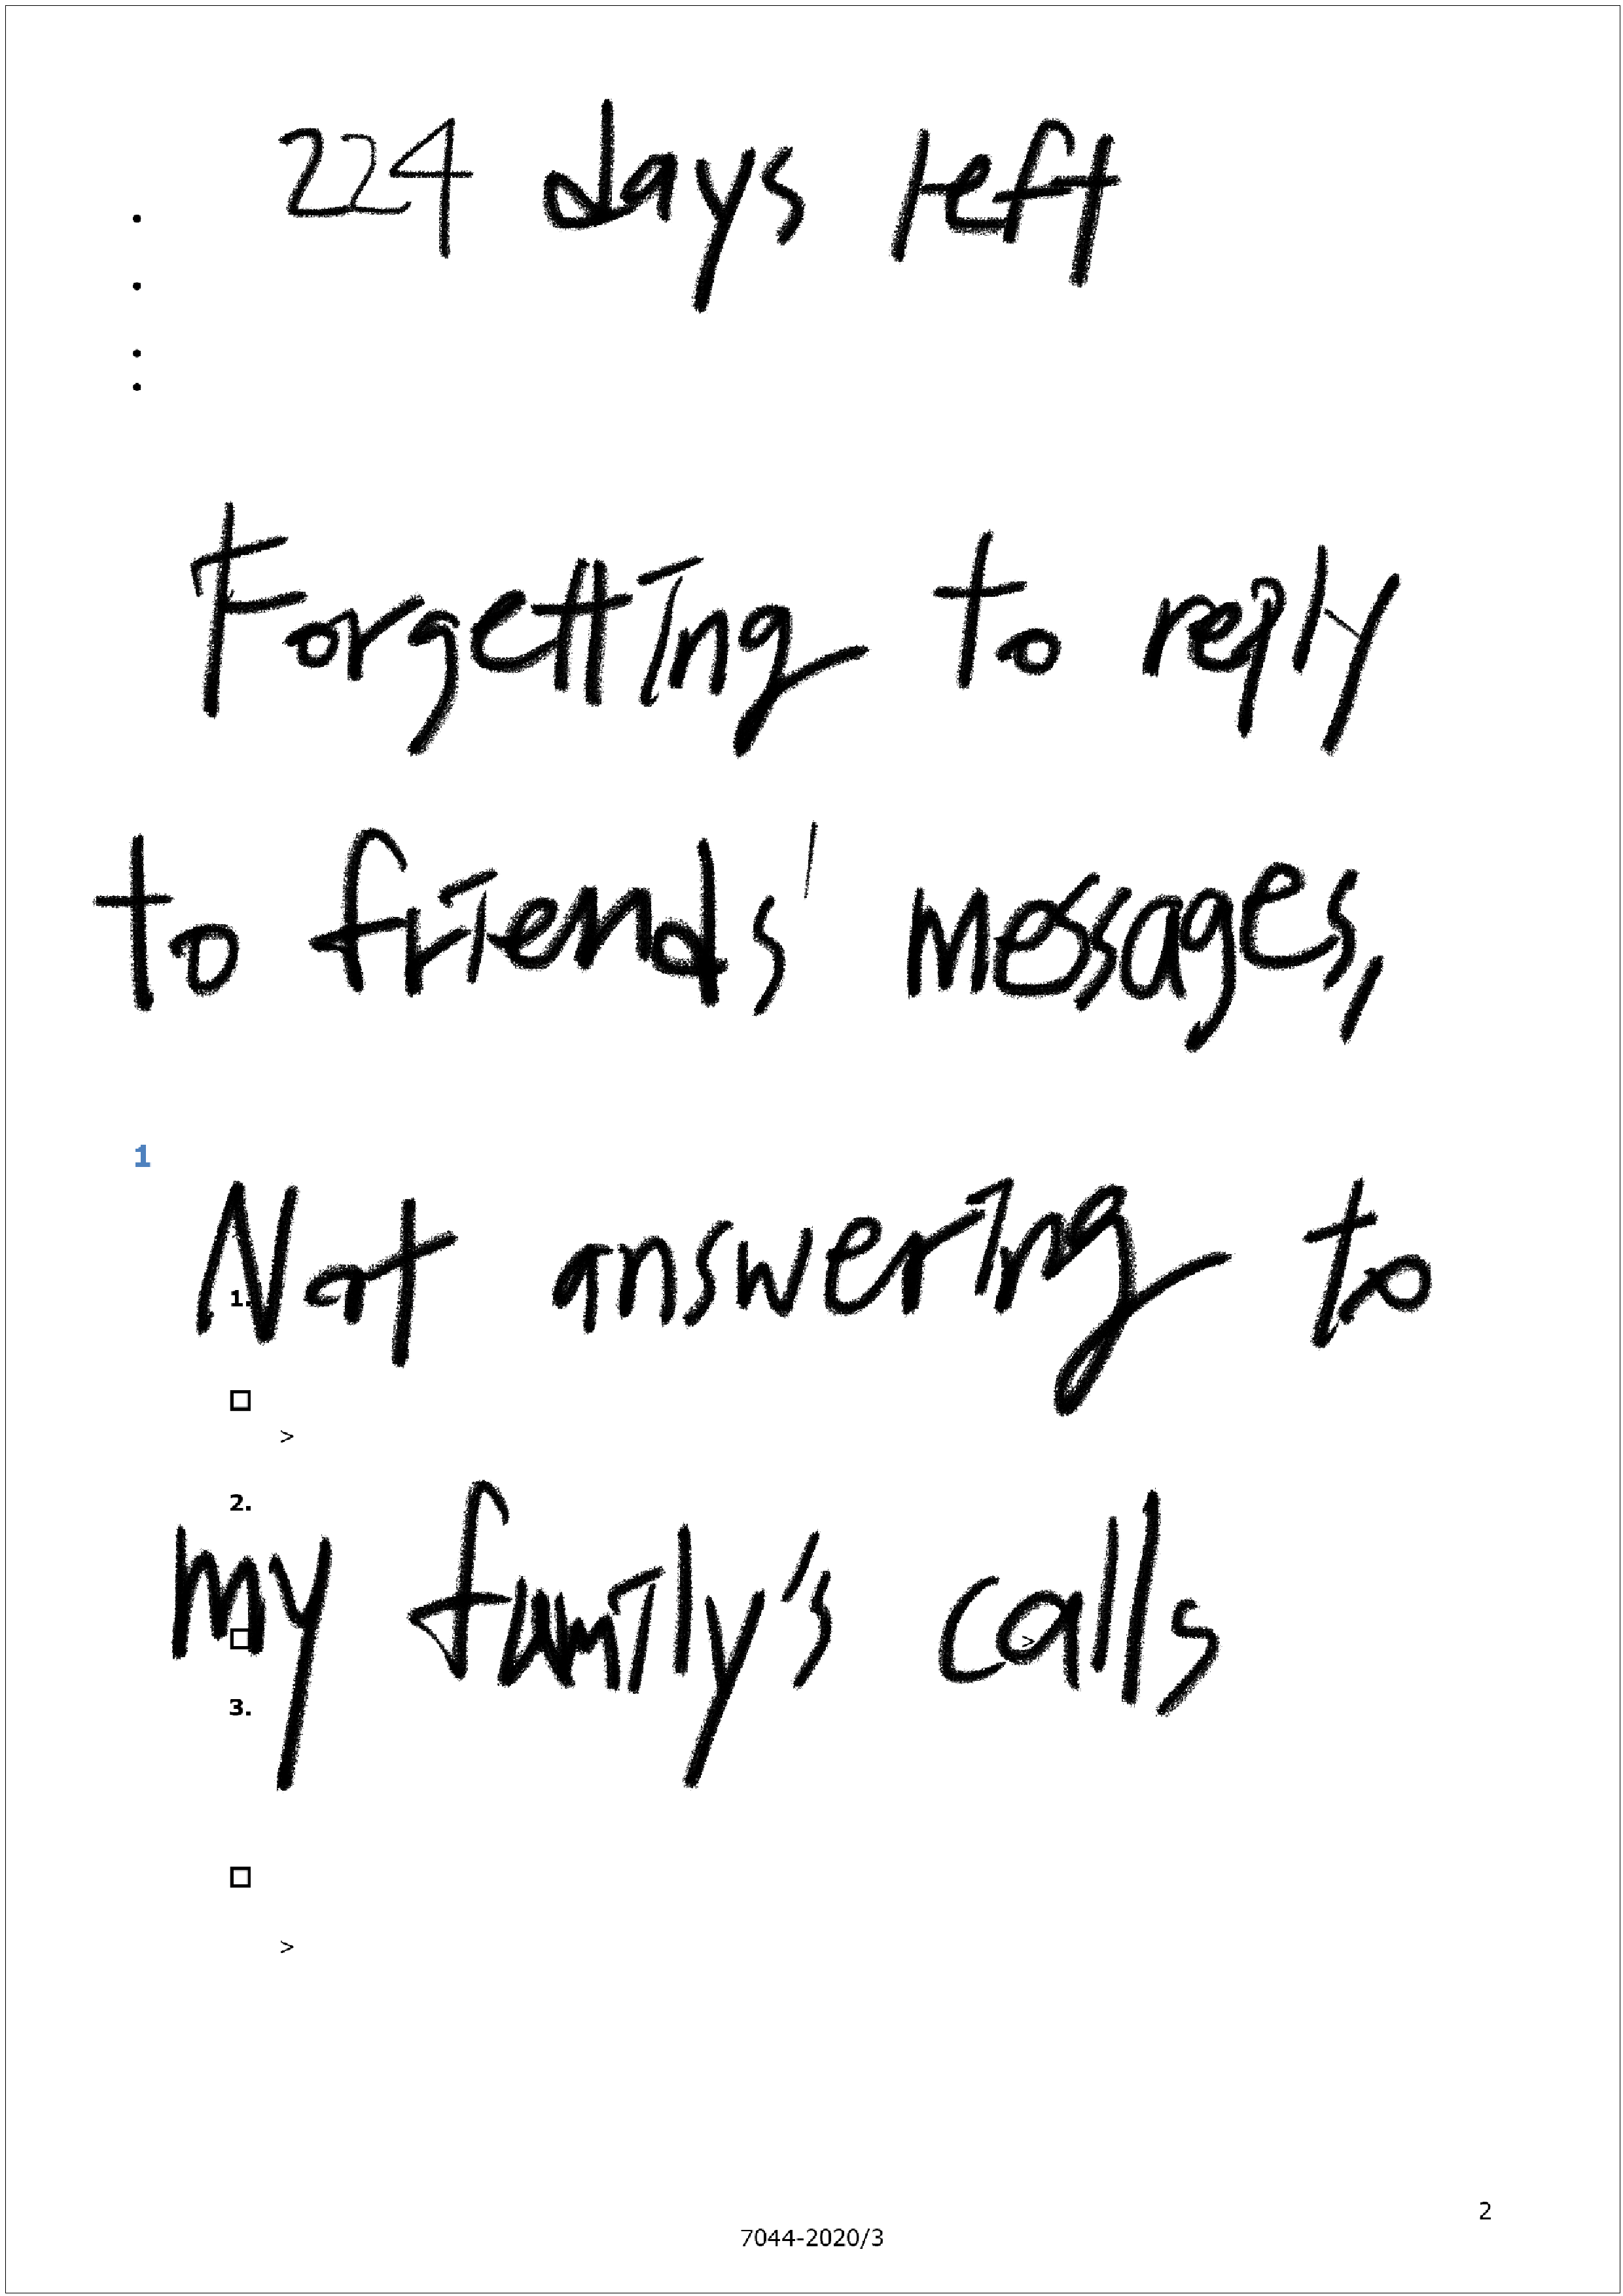 224 days left
•
•
•
•
Forgetting to reply
to friends' messages,
1
Not answering to
1.
□
>
2.
my family's calls
□ >
3.
□
>
2
7044-2020/3